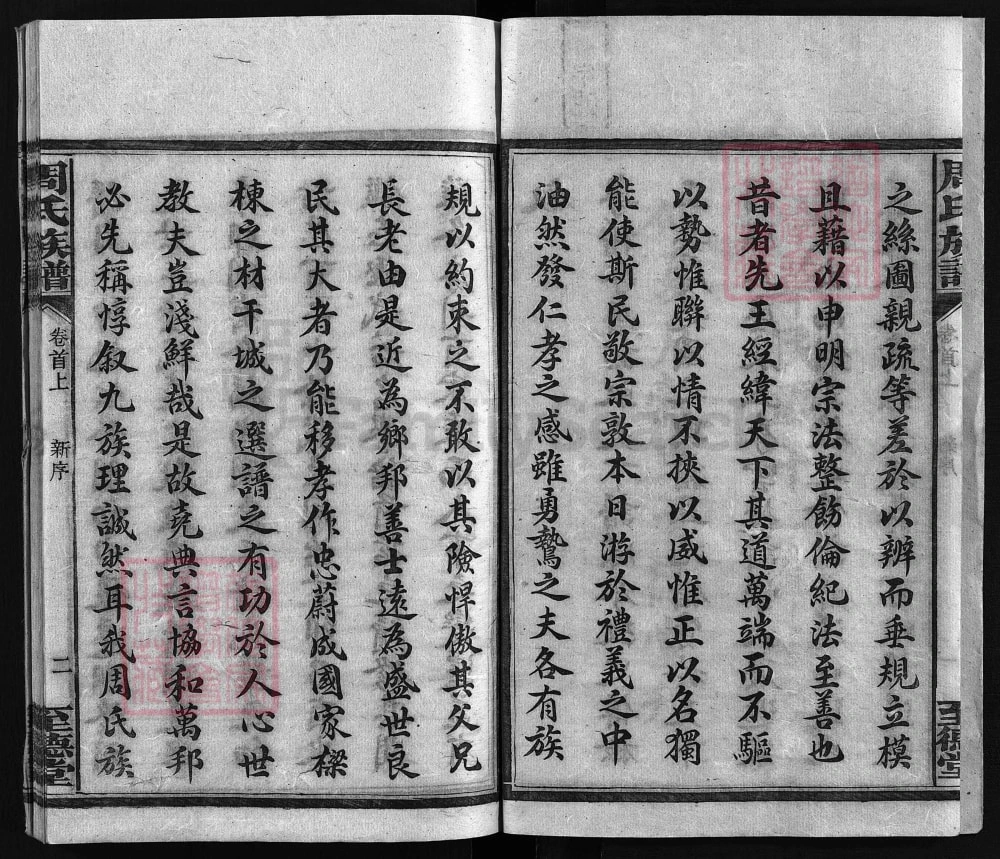 周氏族譜
至德堂
之絲圖親疏等差於以辨而垂規立模
且藉以申明宗法整飭倫紀法至善也
昔者先王經緯天下其道萬端而不驅
以勢惟聯以情不挾以威惟正以名獨
能使斯民敬宗敦本日游於禮義之中
油然發仁孝之感雖勇鷙之夫各有族
規以約束之不敢以其險悍傲其父兄
長老由是近為鄉邦善士遠為盛世良
民其大者乃能移孝作忠蔚成國家樑
棟之材干城之選譜之有功於人心世
教夫豈淺鮮哉是故堯典言協和萬邦
必先稱惇叙九族理誠然耳我周氏族
周氏族譜
卷首上
新序
二
至德堂